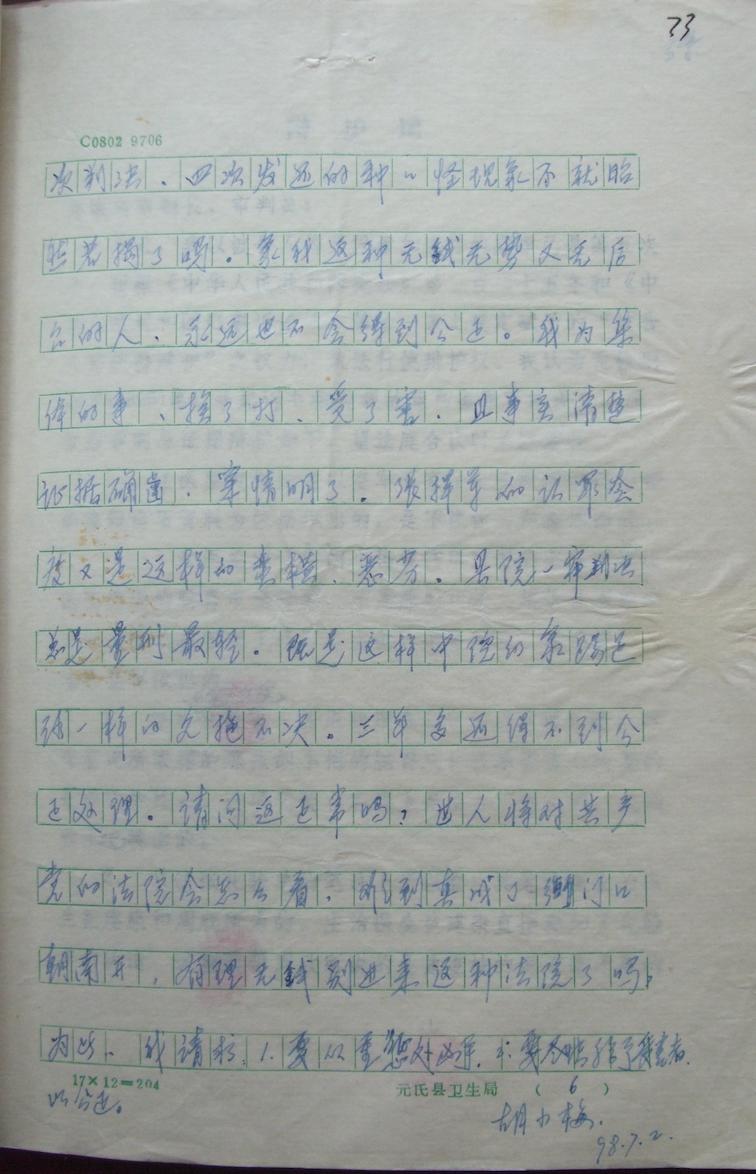 23
C0802 9706
次判决、四次发还的种〃怪现象不就昭
然若揭了吗。象我这种无钱无势又无后
台的人、永远也不会得到公正。我为集
体的事、挨了打、受了害、且事实清楚
证据确凿、案情明了。张择军的认罪会
又是这样的蛮横、恶劣。县院一审判决
总是量刑最轻。既是这样中院的象踢足
球一样的久拖不决。三年多还得不到公
正处理。请问这正常吗？世人将对共产
党的法院会怎么看。难到真成了衙门口
朝南开，有理无钱别进来这种法院了吗。
为此、我请求：1.要从重惩处凶手. 2.要
以公正。
17×12=204
元氏县卫生局 （ 6 ）
胡小梅.
98.7.2.